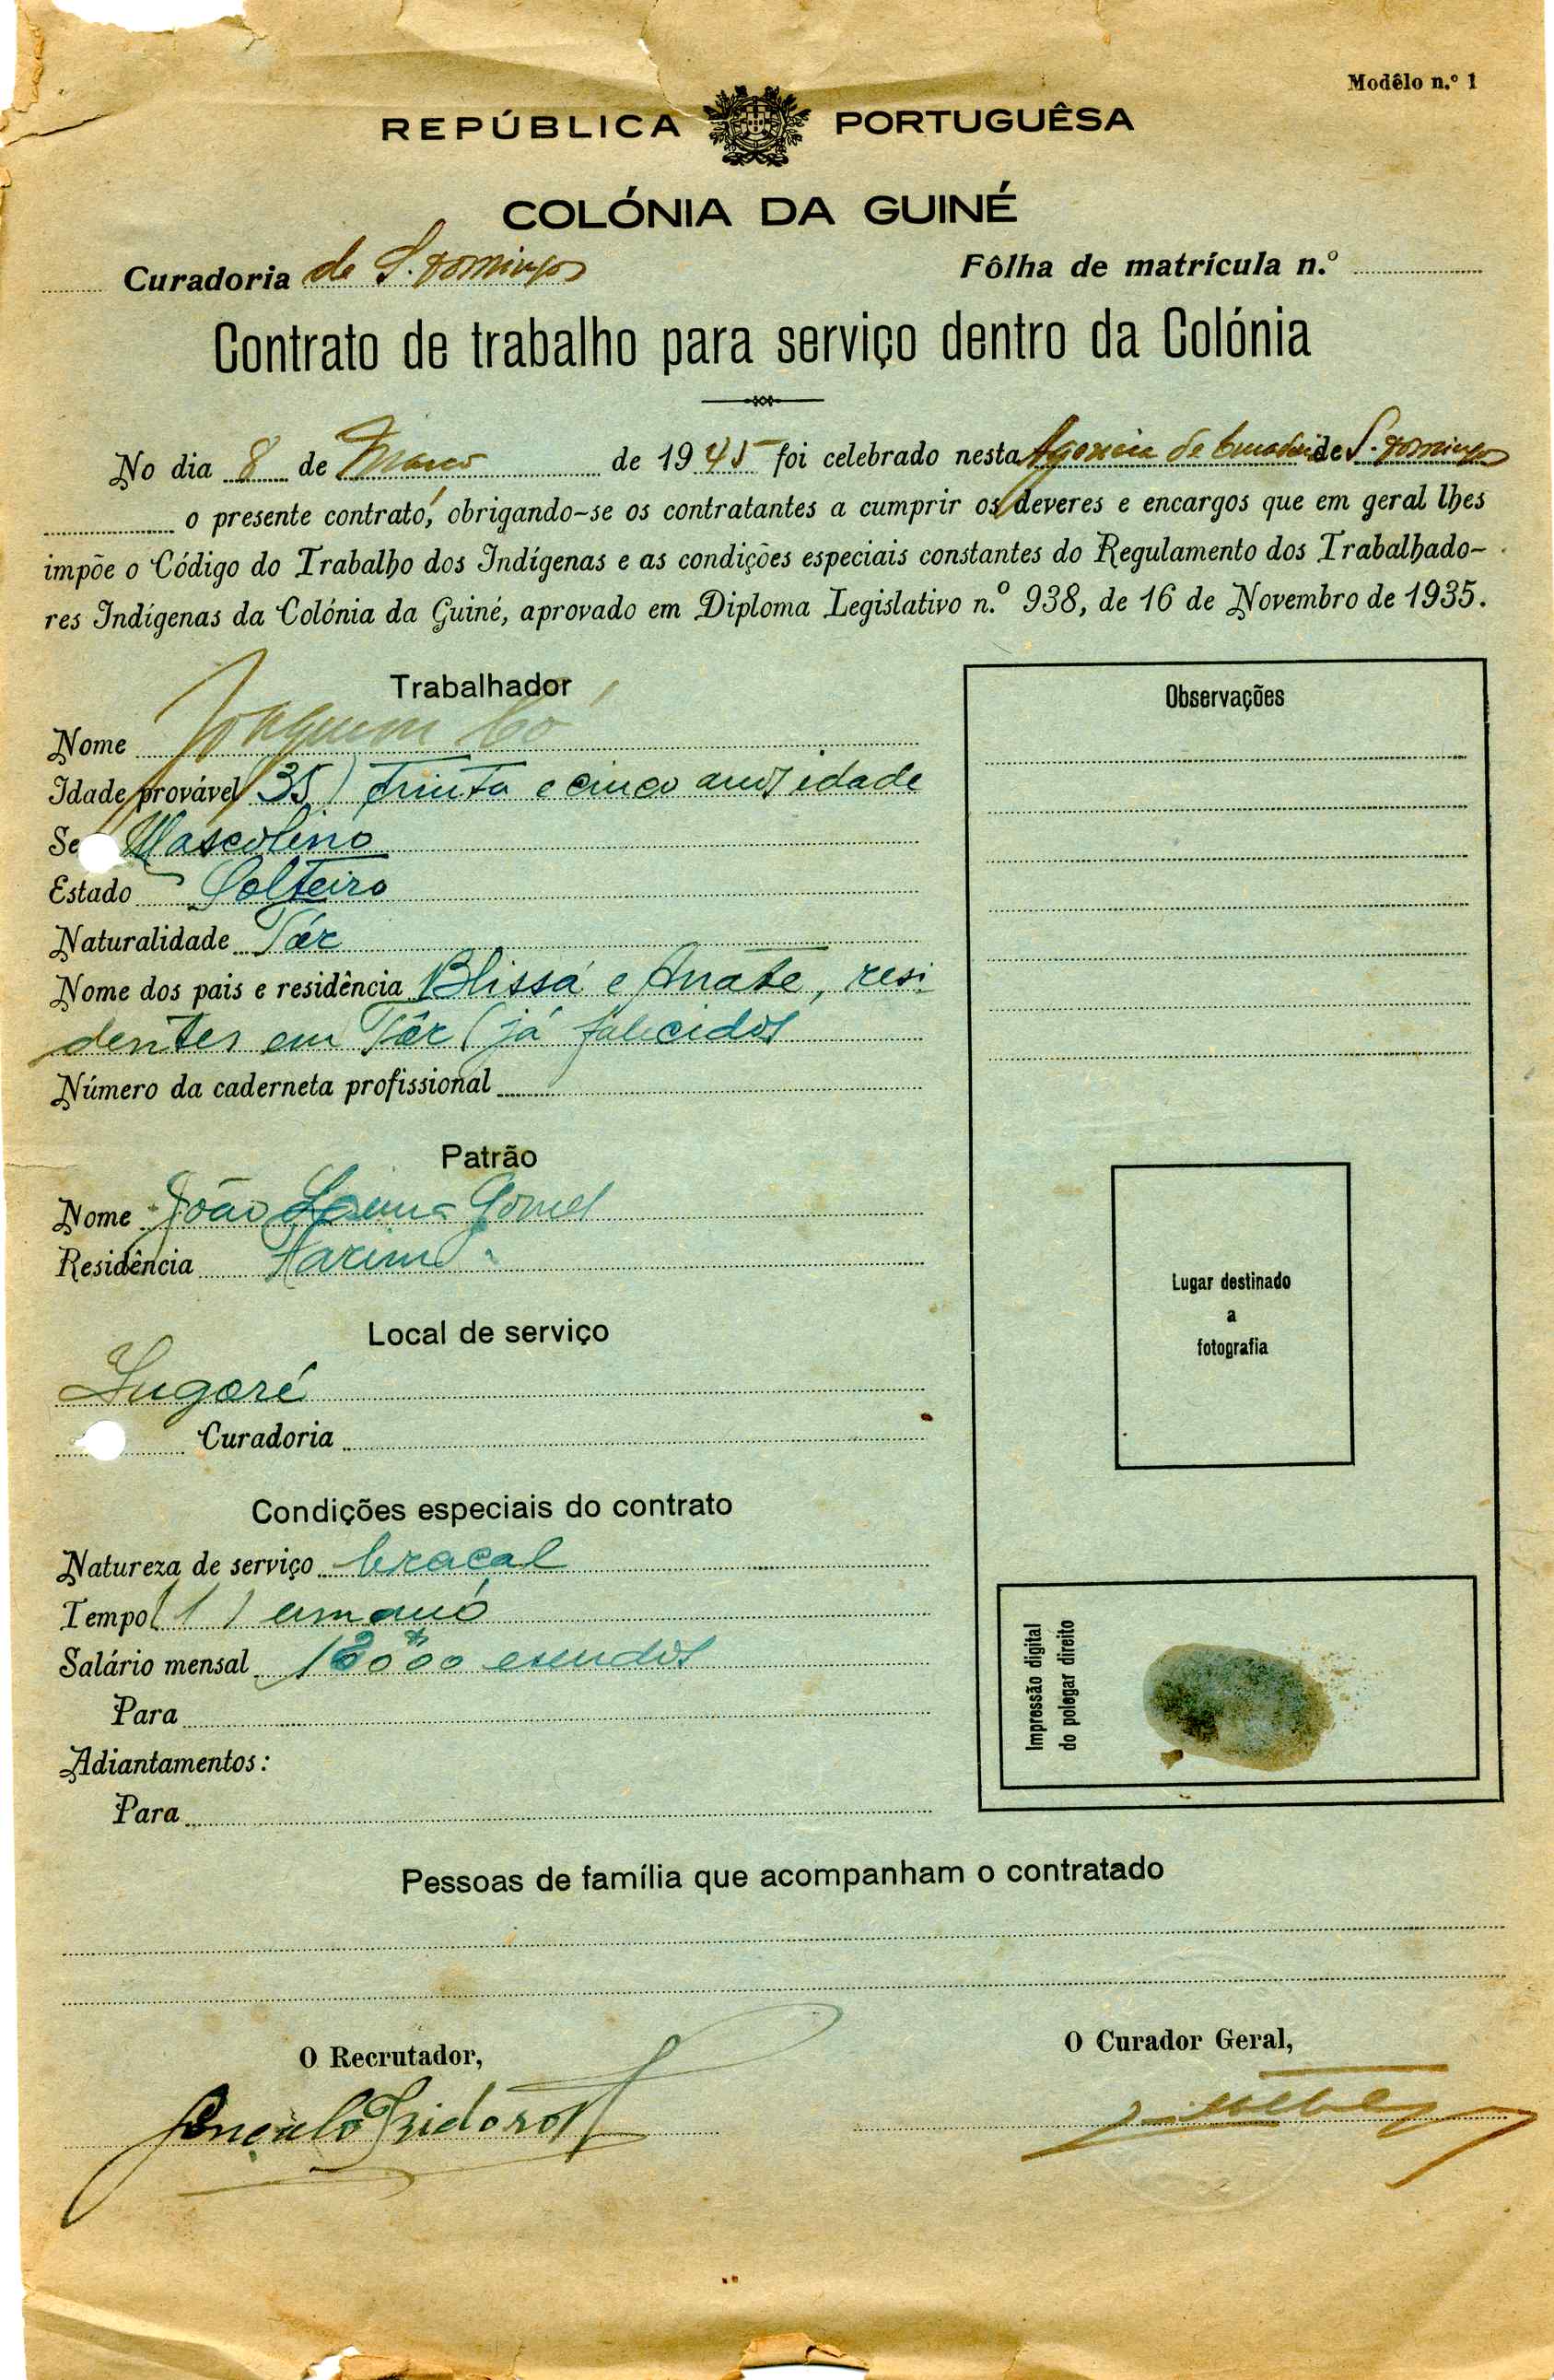 Modêlo n.º 1
REPÚBLICA PORTUGUÊSA
COLÓNIA DA GUINÉ
Curadoria de S. Domingos Fôlha de matrícula n.º
Contrato de trabalho para serviço dentro da Colónia
No dia 8 de Março de 1945 foi celebrado nesta Agencia de de S. Domingos
o presente contrato, obrigando-se os contratantes a cumprir os deveres e encargos que em geral lhes
impõe o Código do Trabalho dos Indígenas e as condições especiais constantes do Regulamento dos Trabalhado-
res Indígenas da Colónia da Guiné, aprovado em Diploma Legislativo n.º 938, de 16 de Novembro de 1935.
Trabalhador
Nome Joaquim Có
Idade provável (35) trinta e cinco anos idade
Se Mascolino
Estado Solteiro
Naturalidade Tár
Nome dos pais e residência Blissá e Anate, resi-
dentes em Tár (já falecidos
Número da caderneta profissional
Patrão
Nome João Gomes
Residência Farim
Local de serviço
Ingoré
Curadoria
Condições especiais do contrato
Natureza de serviço braçal
Tempo (1) um ano
Salário mensal escudos
Para
Adiantamentos:
Para
Observações
Lugar destinado
a
fotografia
Impressão digital
do polegar direito
Pessoas de família que acompanham o contratado
O Recrutador,
Gonçalo Izidoro
O Curador Geral,